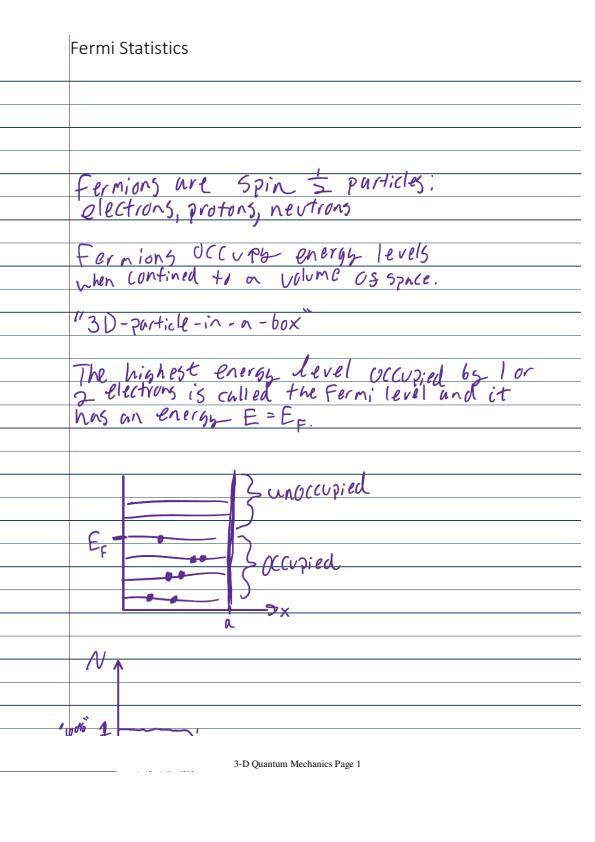 Fermi Statistics
Fermions are spin 1/2 particles:
electrons, protons, neutrons
Fermions occupy energy levels
when confined to a volume of space.
"3D-particle-in-a-box"
The highest energy level occupied by 1 or
2 electrons is called the Fermi level and it
has an energy E = E_F.
unoccupied
E_F
occupied
x
a
N
1
3-D Quantum Mechanics Page 1